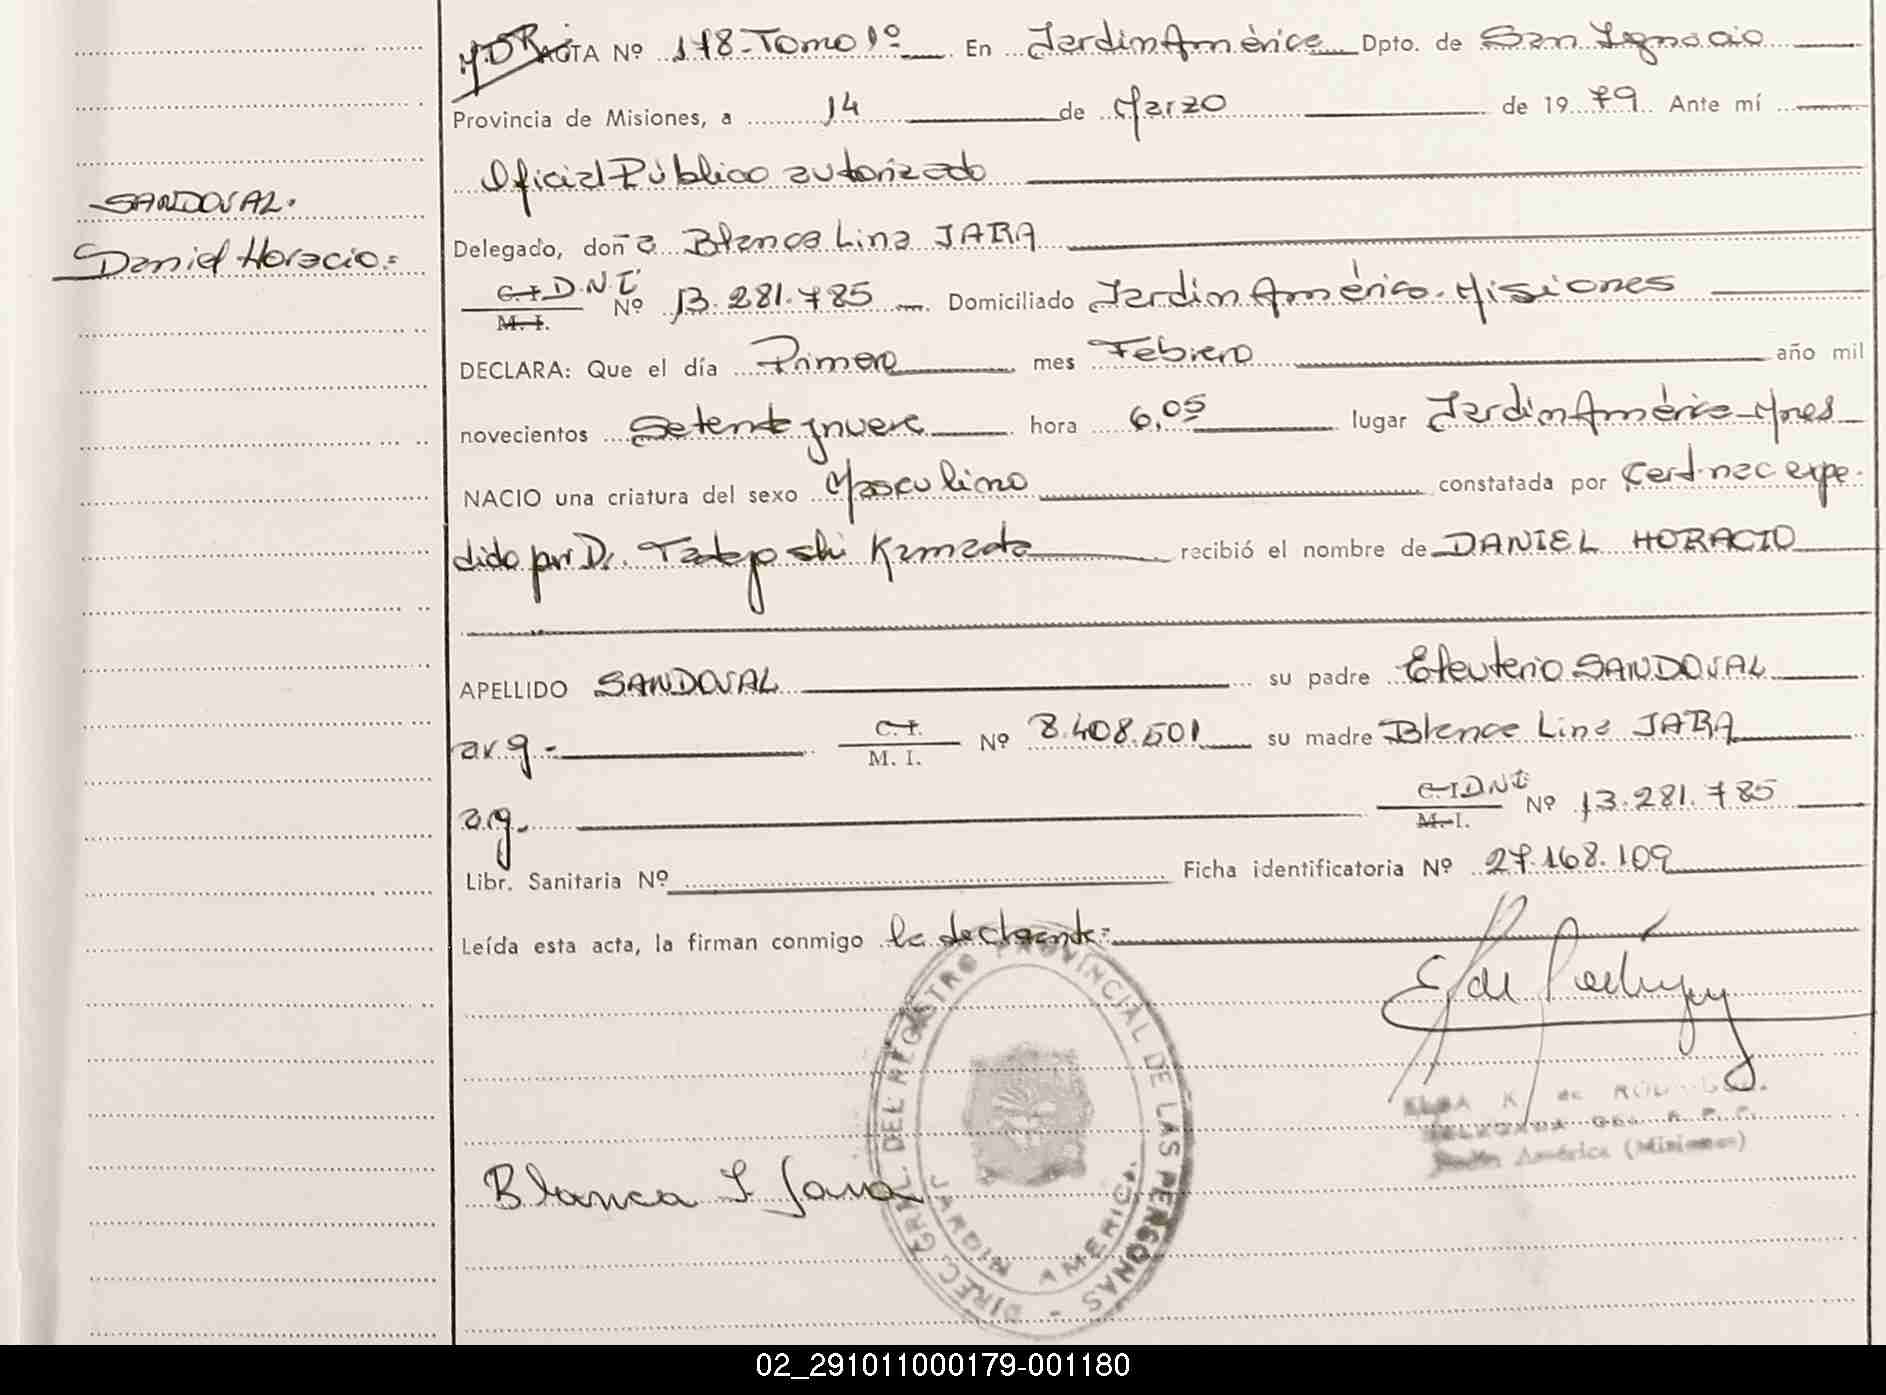 SANDOVAL.
Daniel Horacio.=
ACTA Nº 178-Tomo 1º En Jardin América Dpto. de San Ignacio
Provincia de Misiones, a 14 de Marzo de 1979 Ante mí
Oficial Público autorizado
Delegado, doña Blanca Lina JARA
C.I. D.N.I
M. I. Nº 13.281.785 Domiciliado Jardin América. Misiones
DECLARA: Que el día Primero mes Febrero año mil
novecientos Setenta y nueve hora 6,05 lugar Jardin América-Mnes
NACIO una criatura del sexo Masculino constatada por Cert. nac expe-
dido por Dr. recibió el nombre de DANIEL HORACIO
APELLIDO SANDOVAL su padre Eleuterio SANDOVAL
arg.- C.I.
M. I. Nº 8.408.501 su madre Blanca Lina JARA
arg. C.I D.N.I
M. I. Nº 13.281.785
Libr. Sanitaria Nº Ficha identificatoria Nº 27.168.109
Leída esta acta, la firman conmigo la declarante=
DIREC. GRAL. DEL REGISTRO PROVINCIAL DE LAS PERSONAS -
JARDIN AMERICA
Jardín América (Misiones)
Blanca L Jara
02_291011000179-001180